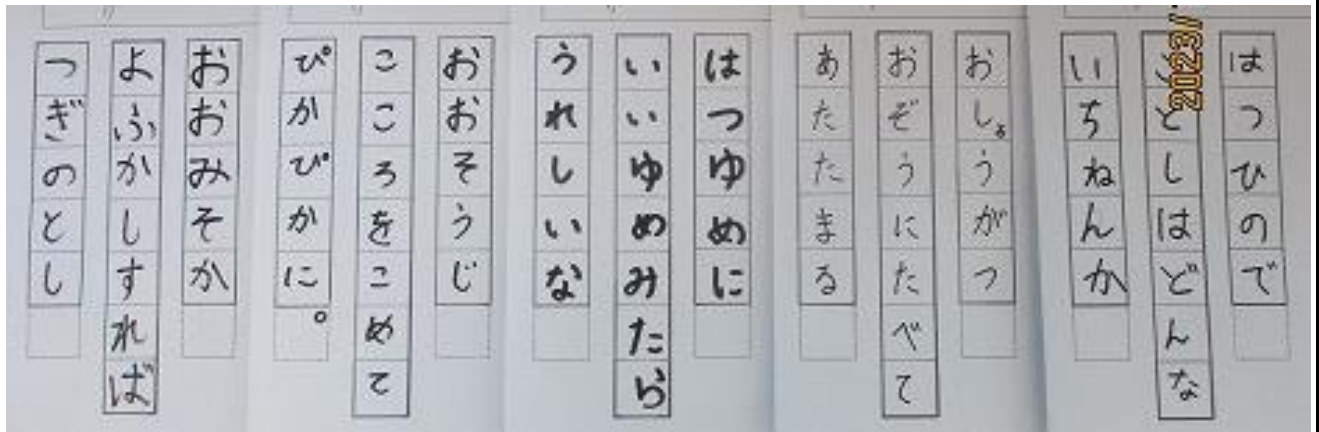 はつひので
ことしはどんな
いちねんか
2023/
おしょうがつ
おぞうにたべて
あたたまる
はつゆめに
いいゆめみたら
うれしいな
おおそうじ
こころをこめて
ぴかぴかに。
おおみそか
よふかしすれば
つぎのとし